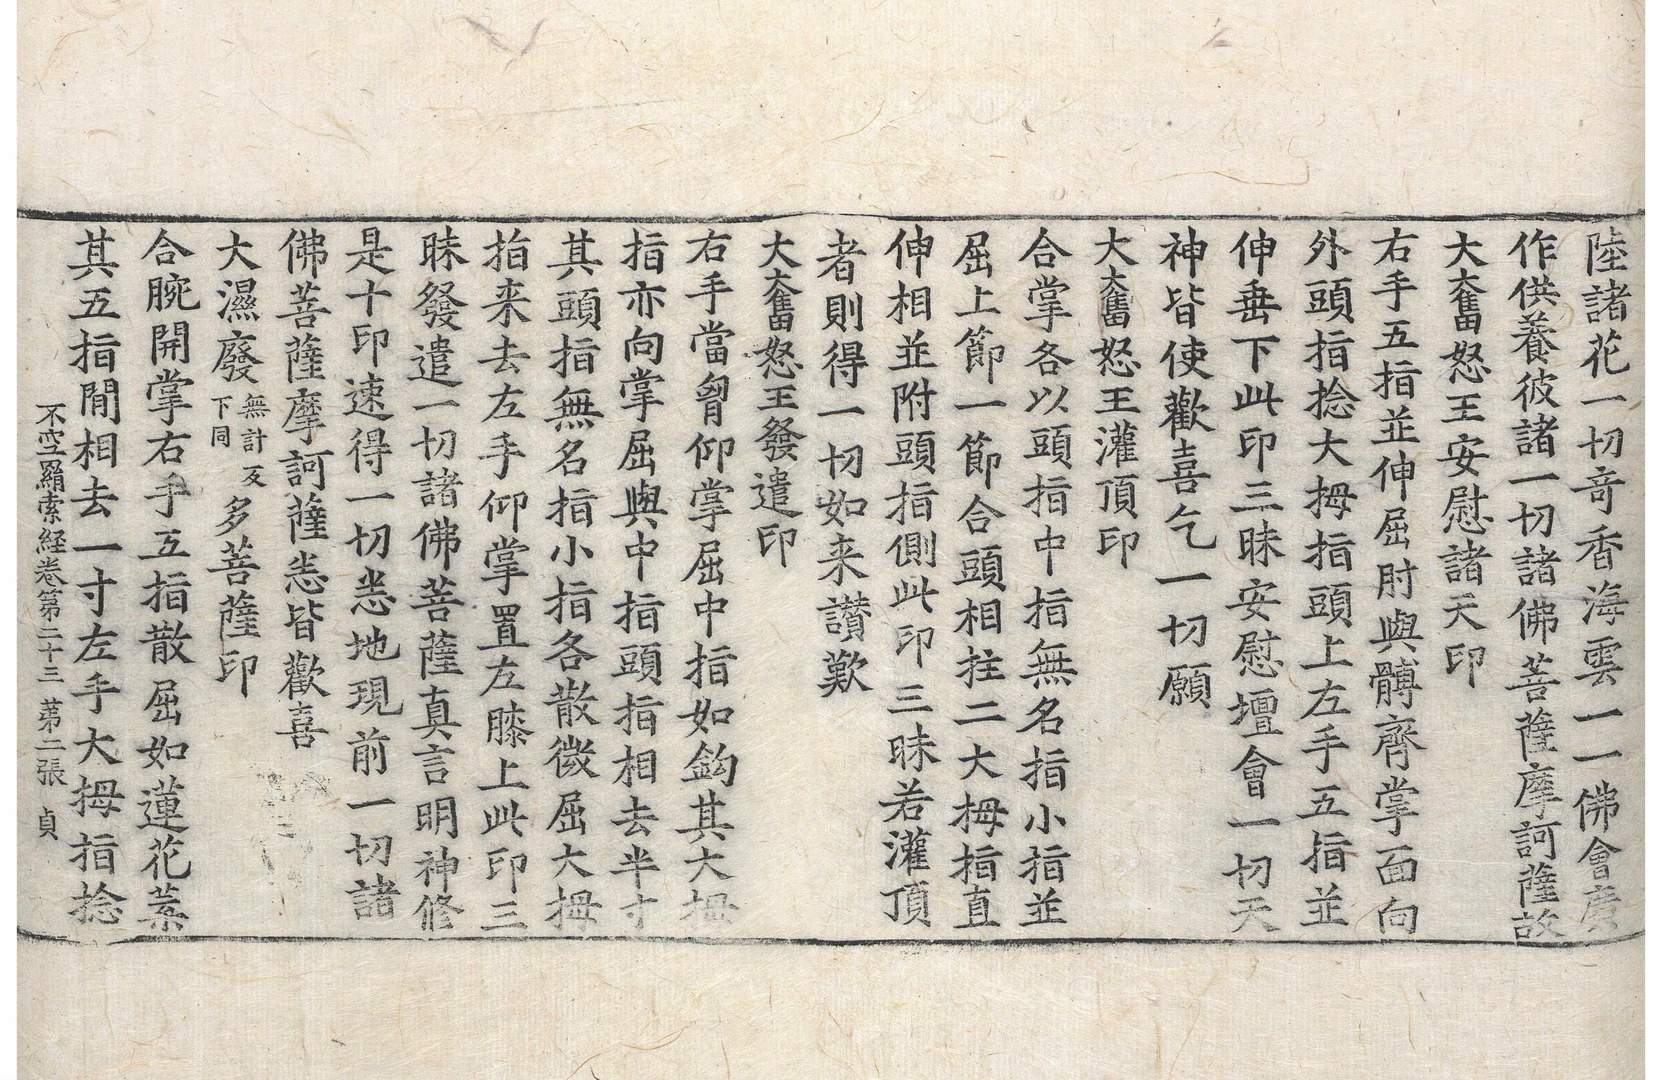 陸諸花一切奇香海雲一一佛會廣
作供養彼諸一切諸佛菩薩摩訶薩故
大奮怒王安慰諸天印
右手五指並伸屈肘與髆齊掌面向
外頭指捻大拇指頭上左手五指並
伸垂下此印三昧安慰壇會一切天
神皆使歡喜乞一切願
大奮怒王灌頂印
合掌各以頭指中指無名指小指並
屈上節一節合頭相拄二大拇指直
伸相並附頭指側此印三昧若灌頂
者則得一切如来讃歎
大奮怒王發遣印
右手當胷仰掌屈中指如鈎其大拇
指亦向掌屈與中指頭指相去半寸
其頭指無名指小指各散微屈大拇
指来去左手仰掌置左膝上此印三
昧發遣一切諸佛菩薩真言明神修
是十印速得一切悉地現前一切諸
佛菩薩摩訶薩悉皆歡喜
大濕廢無計反下同多菩薩印
合腕開掌右手五指散屈如蓮花葉
其五指間相去一寸左手大拇指捻
不空羂索経卷第二十三 第二張 貞